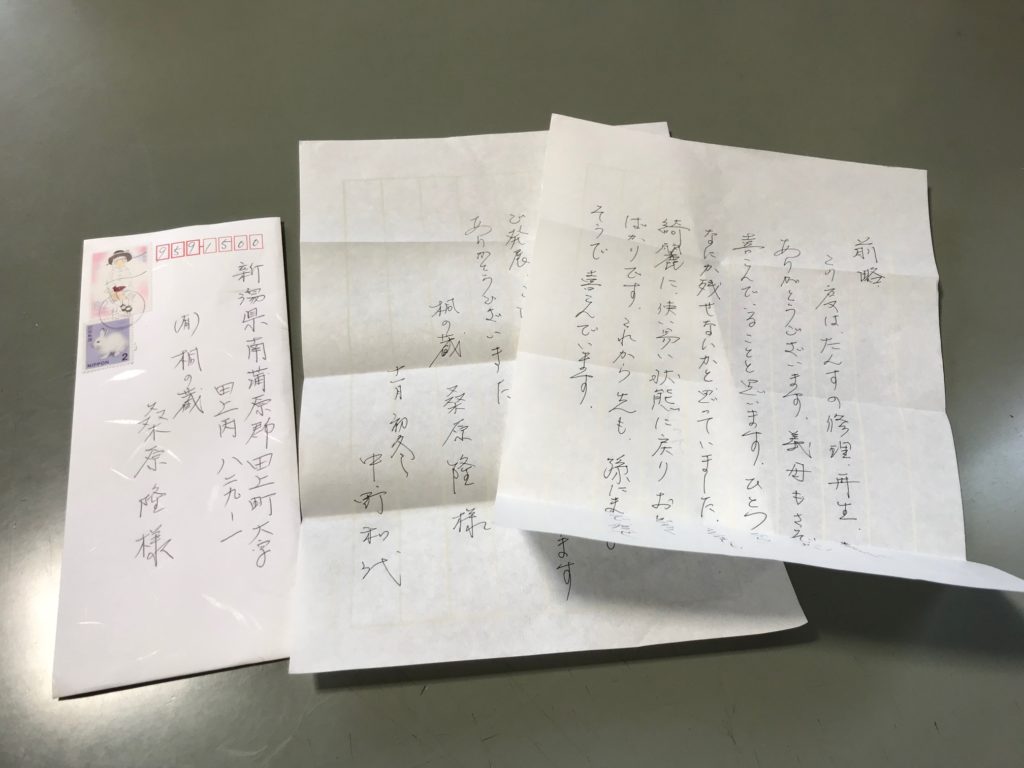 959-1500
新潟県南蒲原郡田上町大字
田上丙 八二九ー一
(有) 桐の蔵
桑原隆様
2
前略
この度は、たんすの修理、再生、
ありがとうございます。義母もさぞ
喜こんでいることと思います。ひとつ
なにか残せないかと思っていました。
綺麗に、使い易い状態に戻り
ばかりです。これから先も、孫にま
そうで 喜こんでいます。
ます
び発展
ありがとうございました
十一月 初冬
中野和代
桐の蔵 桑原隆様